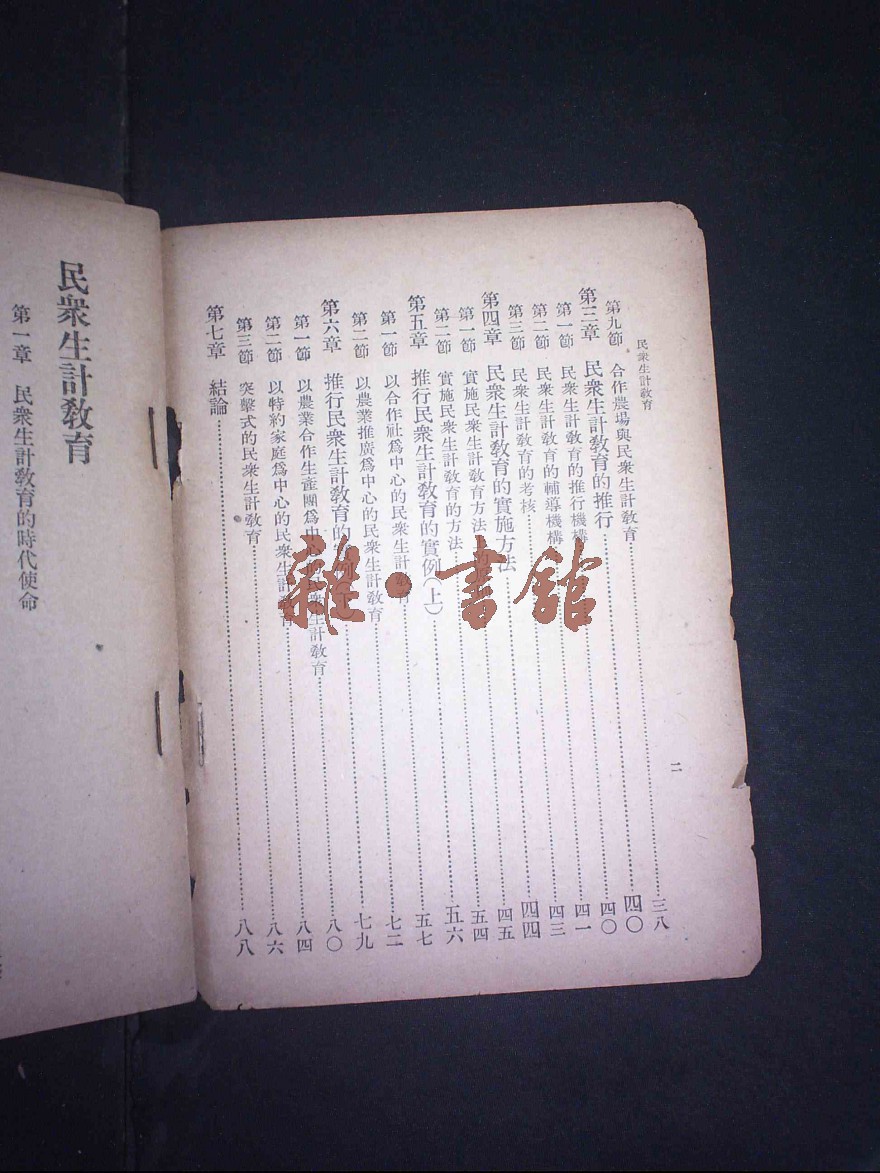 民衆生計教育
二
第九節 合作農場與民衆生計教育……三八
第三章 民衆生計教育的推行……四〇
第一節 民衆生計教育的推行機構……四〇
第二節 民衆生計教育的輔導機構……四一
第三節 民衆生計教育的考核……四三
第四章 民衆生計教育的實施方法……四四
第一節 實施民衆生計教育方法……四五
第二節 實施民衆生計教育的方法……五四
第五章 推行民衆生計教育的實例(上)……五六
第一節 以合作社爲中心的民衆生計教育……五七
第二節 以農業推廣爲中心的民衆生計教育……七二
第六章 推行民衆生計教育的 例(下)……七九
第一節 以農業合作生產團爲中心的民衆生計教育……八〇
第二節 以特約家庭爲中心的民衆生計教育……八四
第三節 突擊式的民衆生計教育……八六
第七章 結論……八八
民衆生計教育
第一章 民衆生計教育的時代使命
雜·書館